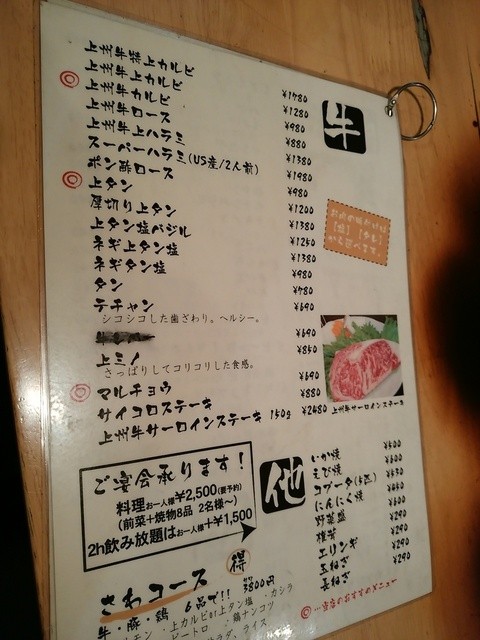 牛
上州牛特上カルビ ¥1780
上州牛上カルビ ¥1280
◎ 上州牛カルビ ¥980
上州牛ロース ¥880
上州牛上ハラミ ¥1380
スーパーハラミ(US産/2人前) ¥1980
ポン酢ロース ¥980
◎ 上タン ¥1200
厚切り上タン ¥1380
上タン塩バジル
ネギ上タン塩 ¥1380
ネギタン塩 ¥980
タン ¥780
テチャン ¥690
シコシコした歯ざわり。ヘルシー。
¥690
上ミノ ¥850
さっぱりしてコリコリした食感。
◎ マルチョウ ¥690
サイコロステーキ ¥880
上州牛サーロインステーキ 150g ¥2480
お肉の味付けは
【塩】【タレ】
から選べます。
上州牛サーロインステーキ
ご宴会承ります!
料理お一人様¥2,500(要予約)
(前菜+焼物8品 2名様~)
2h飲み放題はお一人様+¥1,500
他
いか焼 ¥500
えび焼 ¥600
コブータ(4匹) ¥530
にんにく焼
野菜盛 ¥600
椎茸 ¥290
エリンギ ¥290
玉ねぎ ¥290
長ねぎ ¥290
◎…当店のおすすめメニュー
得
さわコース
牛・豚・鶏 6品で!! 3800円
・上カルビor上タン塩 ・カシラ
・鶏ナンコツ
ライス